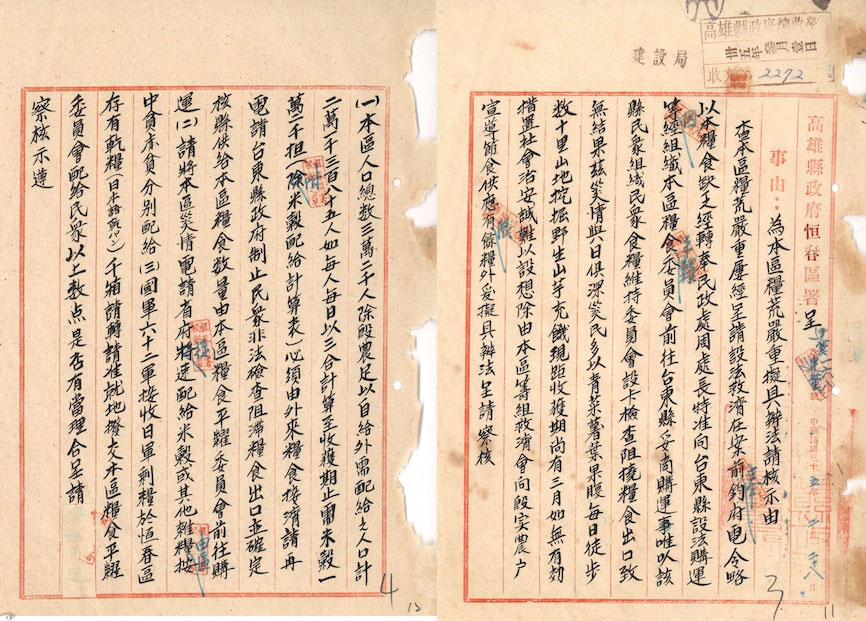 高雄縣政府恒春區署 呈
事由：為本區糧荒嚴重擬具辦法請核示由
查本區糧荒嚴重屢經呈請設法救濟在案前鈞府電令略
以本糧食缺乏經轉奉民政處周處長特准向台東縣設法購運
等經組織本區糧食委員會前往台東縣妥商購運事唯以該
縣民眾組織民眾食糧維持委員會設卡檢查阻撓糧食出口致
無結果茲災情與日俱深災民多以青菜薯葉果腹每日徒步
數十里山地挖掘野生山芋充餓現距收獲期尚有三月如無有効
措置社會治安誠難以設想除由本區籌組救濟會向殷實農戶
宣導節食供應有餘糧外妥擬具辦法呈請察核
建設局
卅五年參月壹日
收
2292
11
(一)本區人口總數三萬二千人除殷農足以自給外需配給之人口計
二萬一千三百八十五人如每人每日以三合計算至收獲期止需米穀一
萬二千担(除米穀配給計算表)必須由外來糧食接濟請再
電請台東縣政府制止民眾非法檢查阻滯糧食出口並確定
核縣供給本區糧食數量由本區糧食平糶委員會前往購
運(二)請將本區災情電請省府將速配給米穀或其他雜糧按
中貧赤貧分別配給(三)國軍六十二軍接收日軍剩糧於恒春區
存有乾糧(日本語乾パン)千箱請轉請准就地撥交本區糧食平糶
委員會配給民眾以上数点是否有當理合呈請
察核示遵
4
12